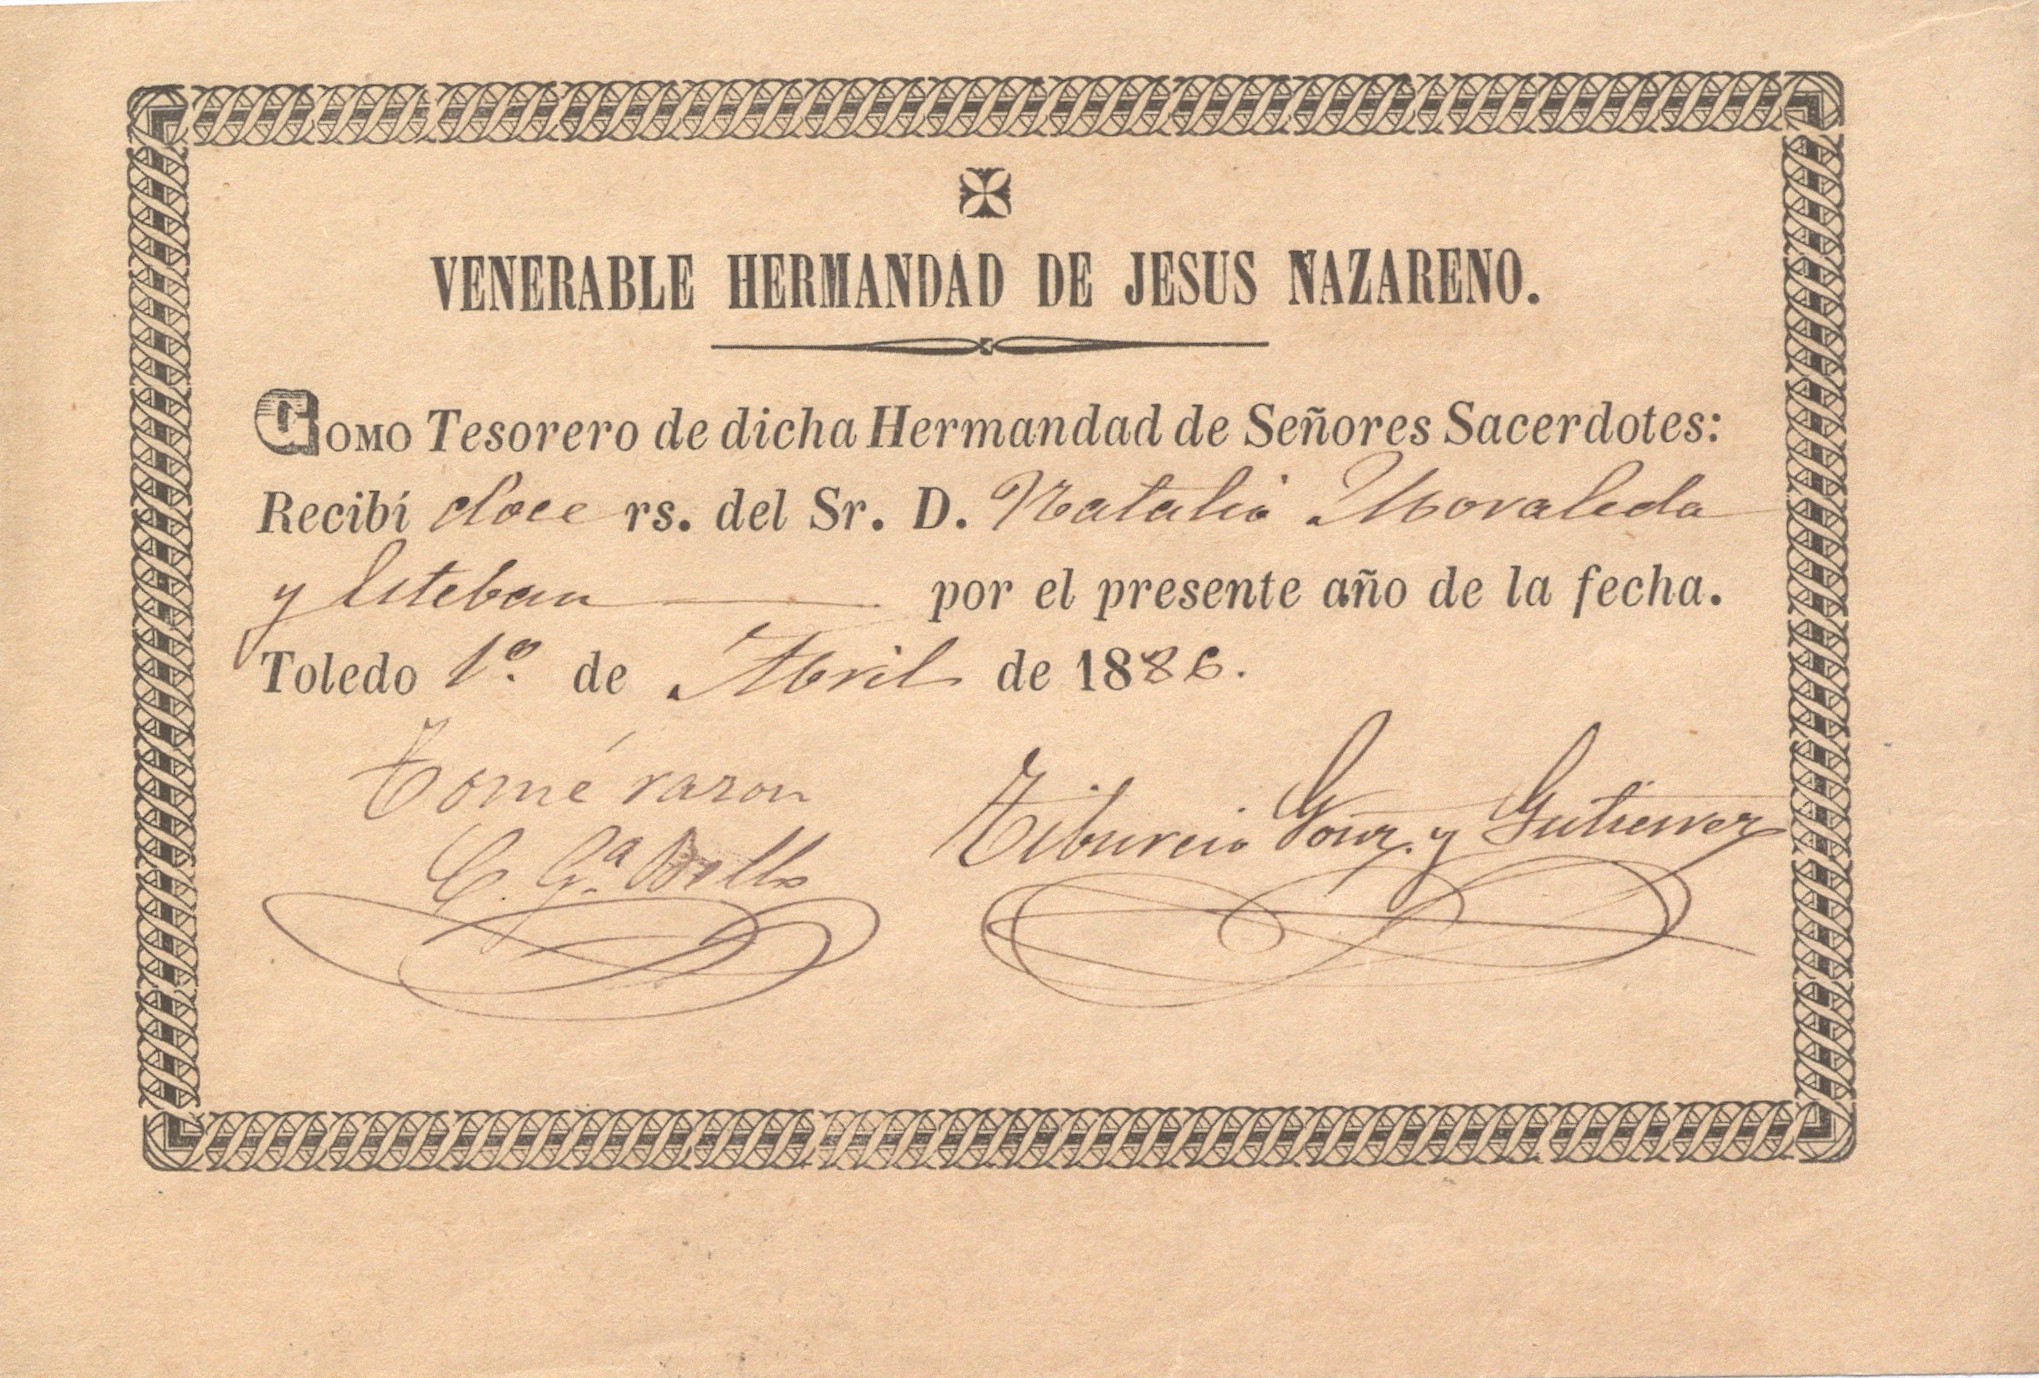 VENERABLE HERMANDAD DE JESUS NAZARENO.
COMO Tesorero de dicha Hermandad de Señores Sacerdotes:
Recibí doce rs. del Sr. D. Natalio Moraleda
y Esteban por el presente año de la fecha.
Toledo 1º. de Abril de 1886.
Tomé razon
C. Gª. Bello
Tiburcio Gonz. y Gutierrez